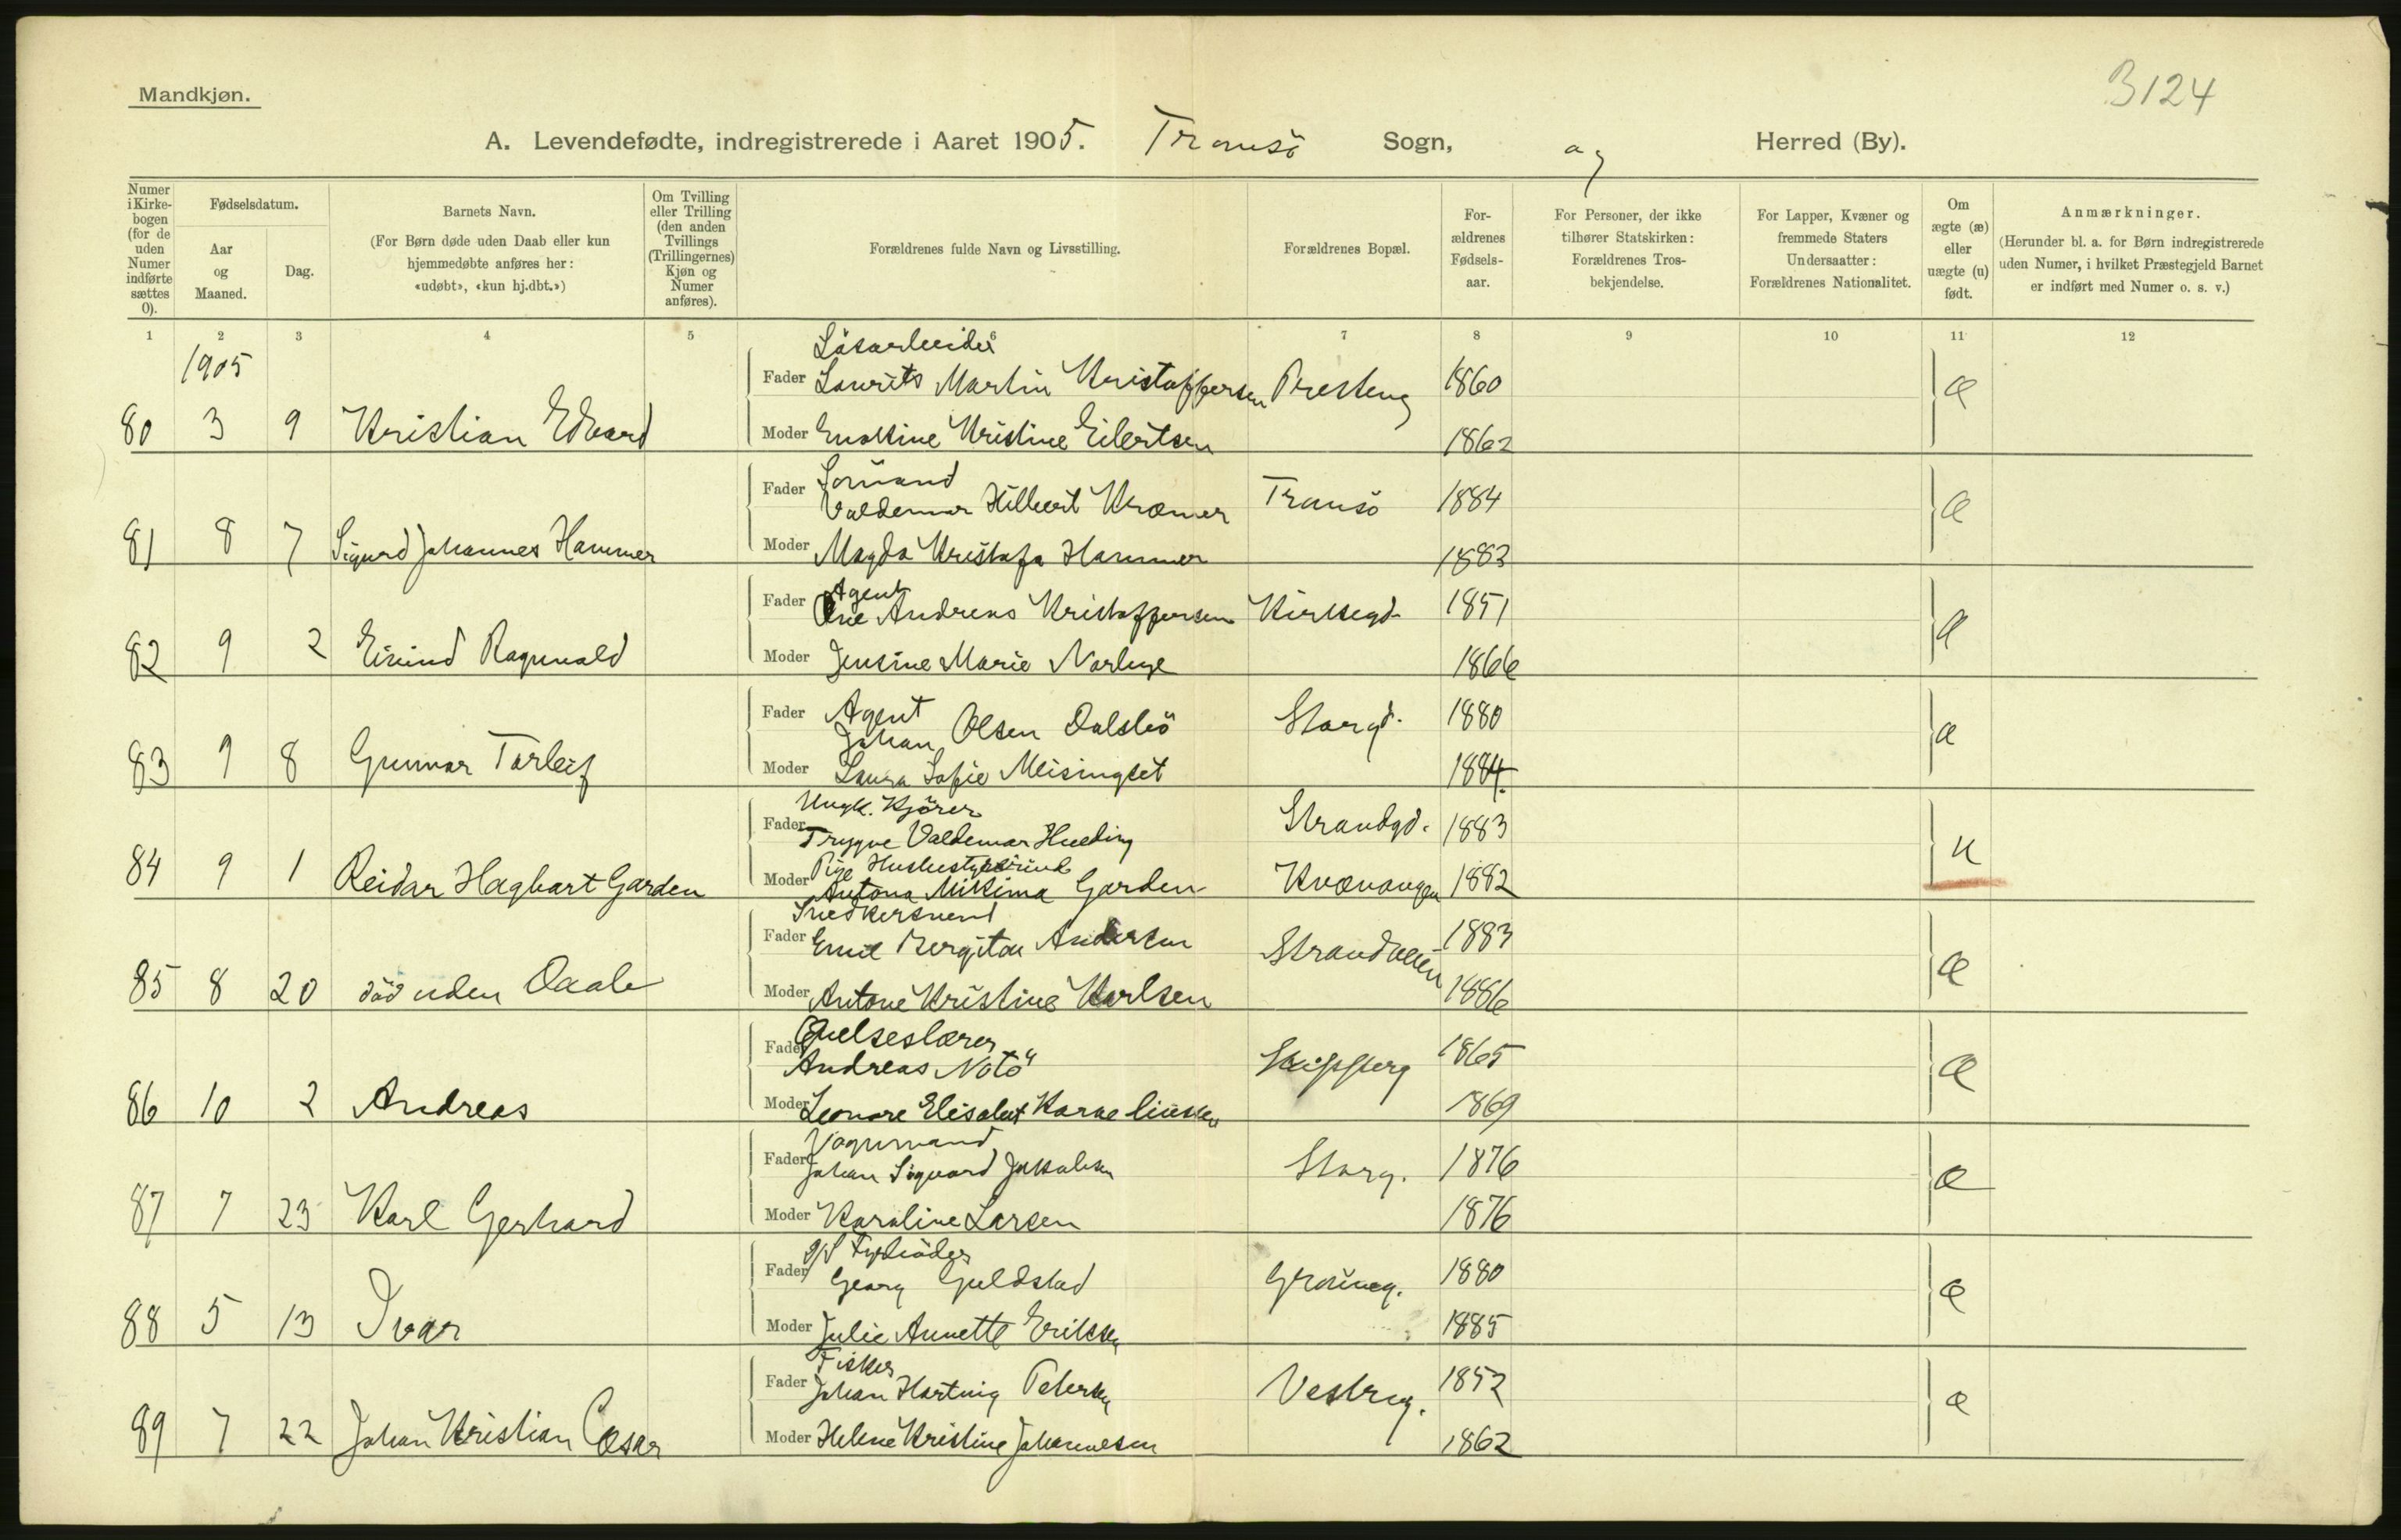 Mandkjøn.
3124
A. Levendefødte, indregistrerede i Aaret 1905. Tromsö Sogn, og Herred (By).
Numer i Kirkebogen (for de uden Numer indførte sættes 0).
Fødselsdatum.
Aar og Maaned.
Dag.
Barnets Navn.
(For Børn døde uden Daab eller kun hjemmedøbte anføres her: «udøbt», «kun hj.dbt.»)
Om Tvilling eller Trilling (den anden Tvillings (Trillingernes) Kjøn og Numer anføres).
Forældrenes fulde Navn og Livsstilling.
Forældrenes Bopæl.
Forældrenes Fødselsaar.
For Personer, der ikke tilhører Statskirken: Forældrenes Trosbekjendelse.
For Lapper, Kvæner og fremmede Staters Undersaatter: Forældrenes Nationalitet.
Om ægte (æ) eller uægte (u) født.
Anmærkninger.
(Herunder bl. a. for Børn indregistrerede uden Numer, i hvilket Præstegjeld Barnet er indført med Numer o. s. v.)
1 2 3 4 5 6 7 8 9 10 11 12
1905
Lösarbeider
Fader Laurits Martin Kristoffersen Presteng 1860 æ
80 3 9 Kristian Edvard
Moder Kristine Eilertsen 1862
Fader
Valdemar Hilbert Kræmer Tromsö 1884 æ
81 8 7 Sigurd Johannes Hammer
Moder Magda Kristofa Hammer 1883
Agent
Fader Andreas Kristoffersen Kirkegd. 1851 æ
82 9 2 Eivind Ragnvald
Moder Jensine Marie 1866
Fader Agent
Johan Olsen Dalsbö Storgd. 1880 æ
83 9 8 Gunnar Torleif
Moder Laura Sofie Meisingset 1884.
Ungk. Kjörer
Fader Trygve Valdemar Strandgd. 1883 u
Pige
84 9 1 Reidar Hagbart Garden
Moder Antona Mikima Garden Kvænangen 1882
Snedkersvend
Fader Emil Bergiton Andersen Strandveien 1883 æ
85 8 20 död uden Daab
Moder Antone Kristine Karlsen 1886
Övelseslærer
Fader Andreas Notö Skipperg 1865 æ
86 10 2 Andreas
Moder Leonore Elisabet 1869
Vognmand
Fader Johan Sigvard Jakobsen Storg. 1876 æ
87 7 23 Karl Gerhard
Moder Karoline Larsen 1876
D/S Fyrböder
Fader Georg Guldstad Grönneg. 1880 æ
88 5 13 Ivar
Moder Julie Annette Eriksen 1885
Fisker
Fader Johan Hartvig Petersen Vestreg. 1852 æ
89 7 22 Johan Kristian Cæsar
Moder Helene Kristine Johannesen 1862